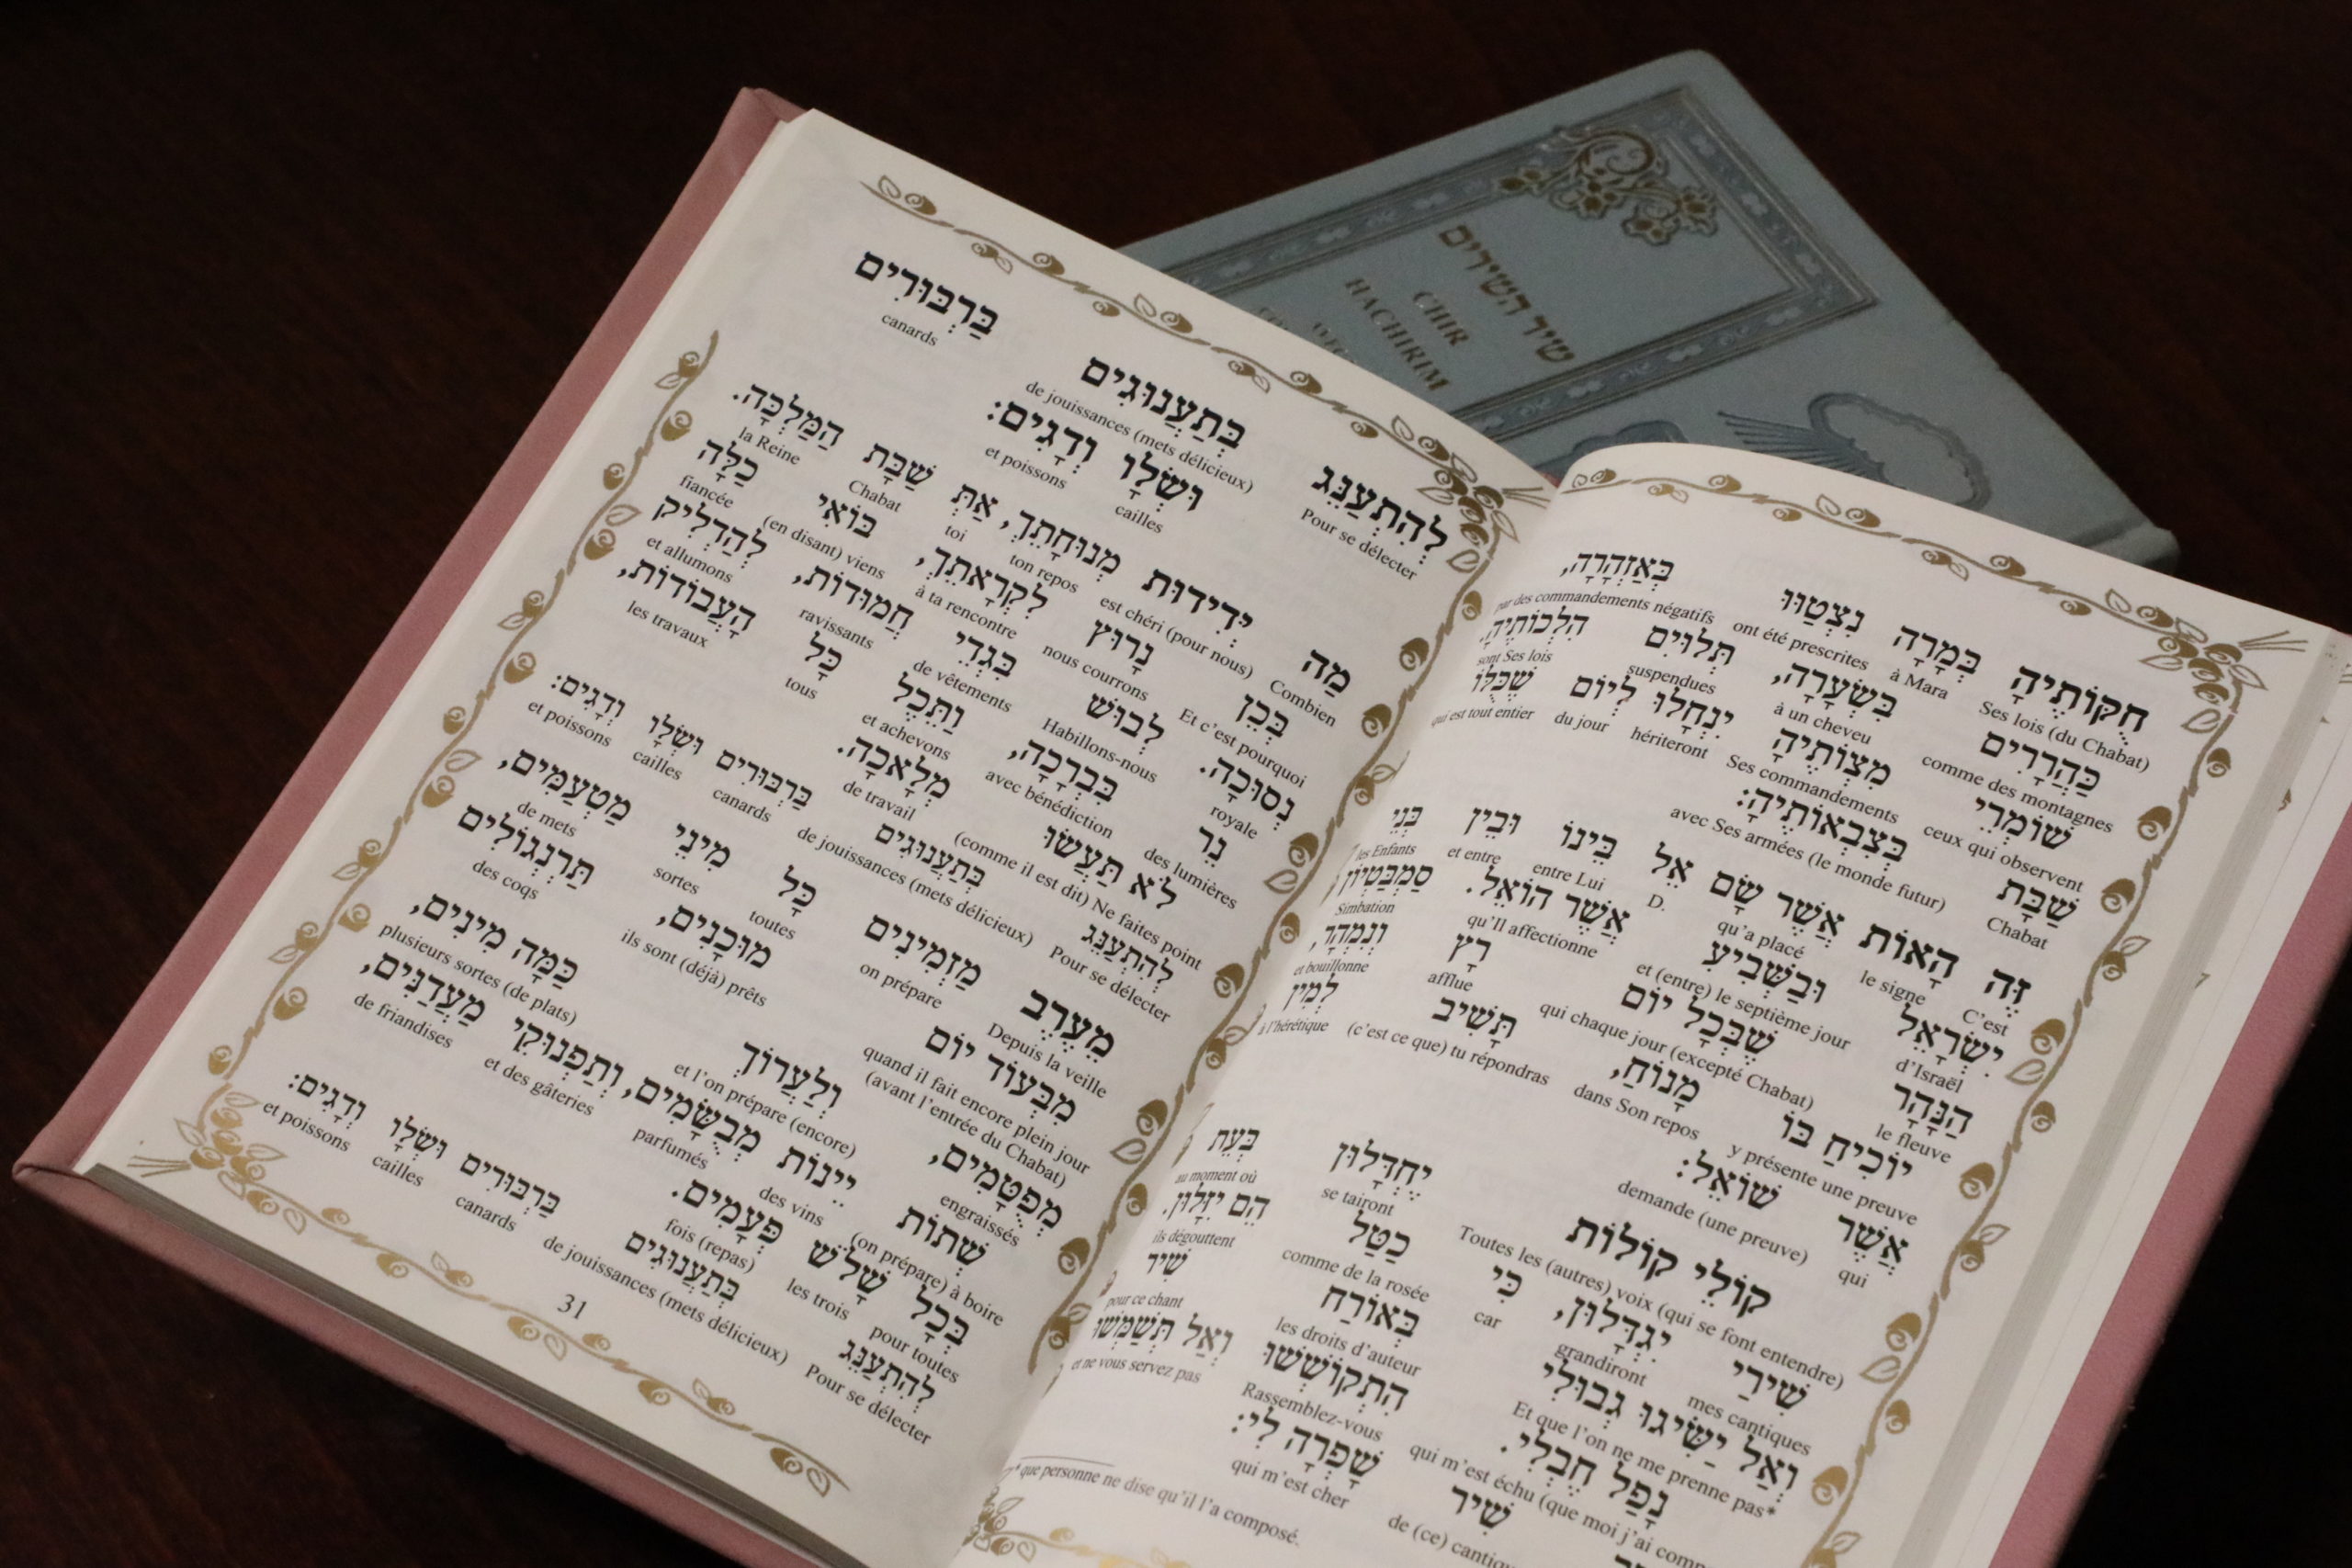 חֻקּוֹתֶיהָ בְּמָרָה נִצְטַוּוּ בְּאַזְהָרָה,
Ses lois (du Chabat) à Mara ont été prescrites par des commandements négatifs
כַּהֲרָרִים בִּשְׂעָרָה, תְּלוּיִם הִלְכוֹתֶיהָ.
comme des montagnes à un cheveu suspendues sont Ses lois
שׁוֹמְרֵי מִצְוֹתֶיהָ יִנְחָלוּ לְיוֹם שֶׁכֻּלּוֹ
ceux qui observent Ses commandements hériteront du jour qui est tout entier
שַׁבָּת בְּצִבְאוֹתֶיהָ:
Chabat avec Ses armées (le monde futur)
זֶה הָאוֹת אֲשֶׁר שָׂם אֵל בֵּינוֹ וּבֵין בְּנֵי
C'est le signe qu'a placé D. entre Lui et entre les Enfants
יִשְׂרָאֵל וּבַשְּׁבִיעִי אֲשֶׁר הוֹאֵל. סַמְבַּטְיוֹן
d'Israël et (entre) le septième jour qu'Il affectionne Simbation
הַנָּהָר שֶׁבְּכָל יוֹם רָץ וְנִמְהָר,
le fleuve qui chaque jour (excepté Chabat) afflue et bouillonne
יוֹכִיחַ בּוֹ מָנוֹחַ, תָּשִׁיב לְמִין
y présente une preuve dans Son repos (c'est ce que) tu répondras à l'hérétique
אֲשֶׁר שׁוֹאֵל:
qui demande (une preuve)
קוֹלֵי קוֹלוֹת יֶחְדָּלוּן בְּעֵת
Toutes les (autres) voix (qui se font entendre) se tairont au moment où
שִׁירַי יִגְדָּלוּן, כִּי כַטַּל הֵם יִזָּלוּן.
mes cantiques grandiront car comme de la rosée ils dégouttent
וְאַל יַשִּׂיגוּ גְבוּלִי בְּאוֹרַח שִׁיר
Et que l'on ne me prenne pas* les droits d'auteur pour ce chant
נָפַל חֶבְלִי. הִתְקוֹשְׁשׁוּ וְאַל תְּשַׁמְּשׁוּ
qui m'est échu (que moi j'ai Rassemblez-vous et ne vous servez pas
שִׁיר שָׁפְרָה לִי:
de (ce) qui m'est cher
* que personne ne dise qu'il l'a composé.
לְהִתְעַנֵּג בְּתַעֲנוּגִים בַּרְבּוּרִים
Pour se délecter de jouissances (mets délicieux) canards
וּשְׂלָו וְדָגִים:
cailles et poissons
מַה יְּדִידוּת מְנוּחָתֵךְ, אַתְּ שַׁבָּת הַמַּלְכָּה.
Combien est chéri (pour nous) ton repos toi Chabat la Reine
בְּכֵן נָרוּץ לִקְרָאתֵךְ, בּוֹאִי כַלָּה
Et c'est pourquoi nous courrons à ta rencontre (en disant) viens fiancée
נְסוּכָה. לְבוּשׁ בִּגְדֵי חֲמוּדוֹת, לְהַדְלִיק
royale Habillons-nous de vêtements ravissants et allumons
נֵר בִּבְרָכָה, וַתֵּכֶל כָּל הָעֲבוֹדוֹת,
des lumières avec bénédiction et achevons tous les travaux
לֹא תַּעֲשׂוּ מְלָאכָה.
(comme il est dit) Ne faites point de travail
לְהִתְעַנֵּג בְּתַעֲנוּגִים בַּרְבּוּרִים וּשְׂלָו וְדָגִים:
Pour se délecter de jouissances (mets délicieux) canards cailles et poissons
מֵעֶרֶב מַזְמִינִים כָּל מִינֵי מַטְעַמִּים,
Depuis la veille on prépare toutes sortes de mets
מִבְּעוֹד יוֹם מוּכָנִים, תַּרְנְגוֹלִים
quand il fait encore plein jour (avant l'entrée du Chabat) ils sont (déjà) prêts des coqs
מְפֻטָּמִים, וְלַעֲרוֹךְ כַּמָּה מִינִים,
engraissés et l'on prépare (encore) plusieurs sortes (de plats)
שְׁתוֹת יֵינוֹת מְבֻשָּׂמִים, וְתַפְנוּקֵי מַעֲדַנִּים,
(on prépare) à boire des vins parfumés et des gâteries de friandises
בְּכָל שָׁלֹשׁ פְּעָמִים.
pour toutes les trois fois (repas)
לְהִתְעַנֵּג בְּתַעֲנוּגִים בַּרְבּוּרִים וּשְׂלָו וְדָגִים:
Pour se délecter de jouissances (mets délicieux) canards cailles et poissons
31
שיר השירים
CHIR
HACHIRIM